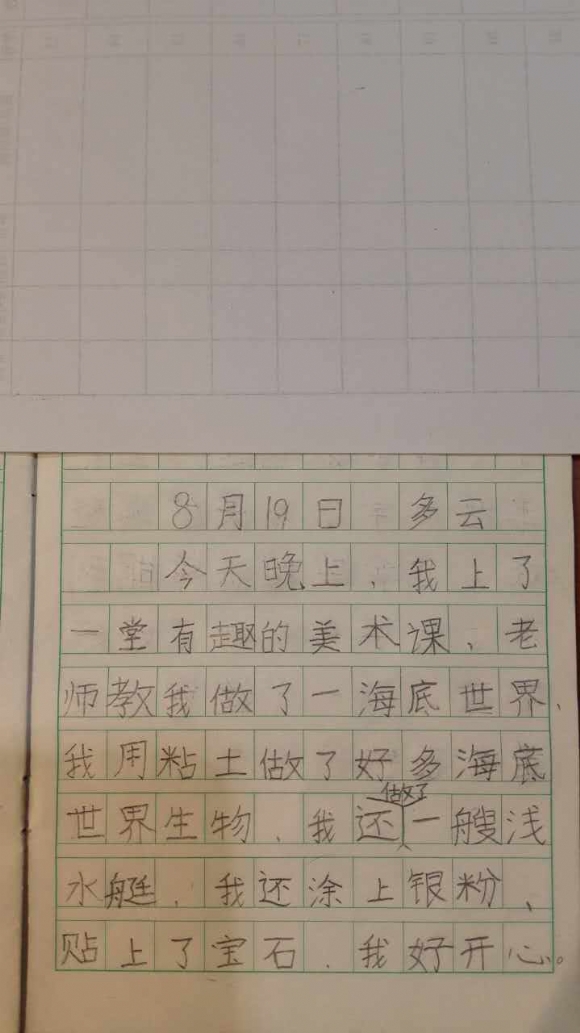 8月19日 多云
今天晚上，我上了
一堂有趣的美术课、老
师教我做了一海底世界、
我用粘土做了好多海底
世界生物，我还做了一艘浅
水艇，我还涂上银粉、
贴上了宝石，我好开心。